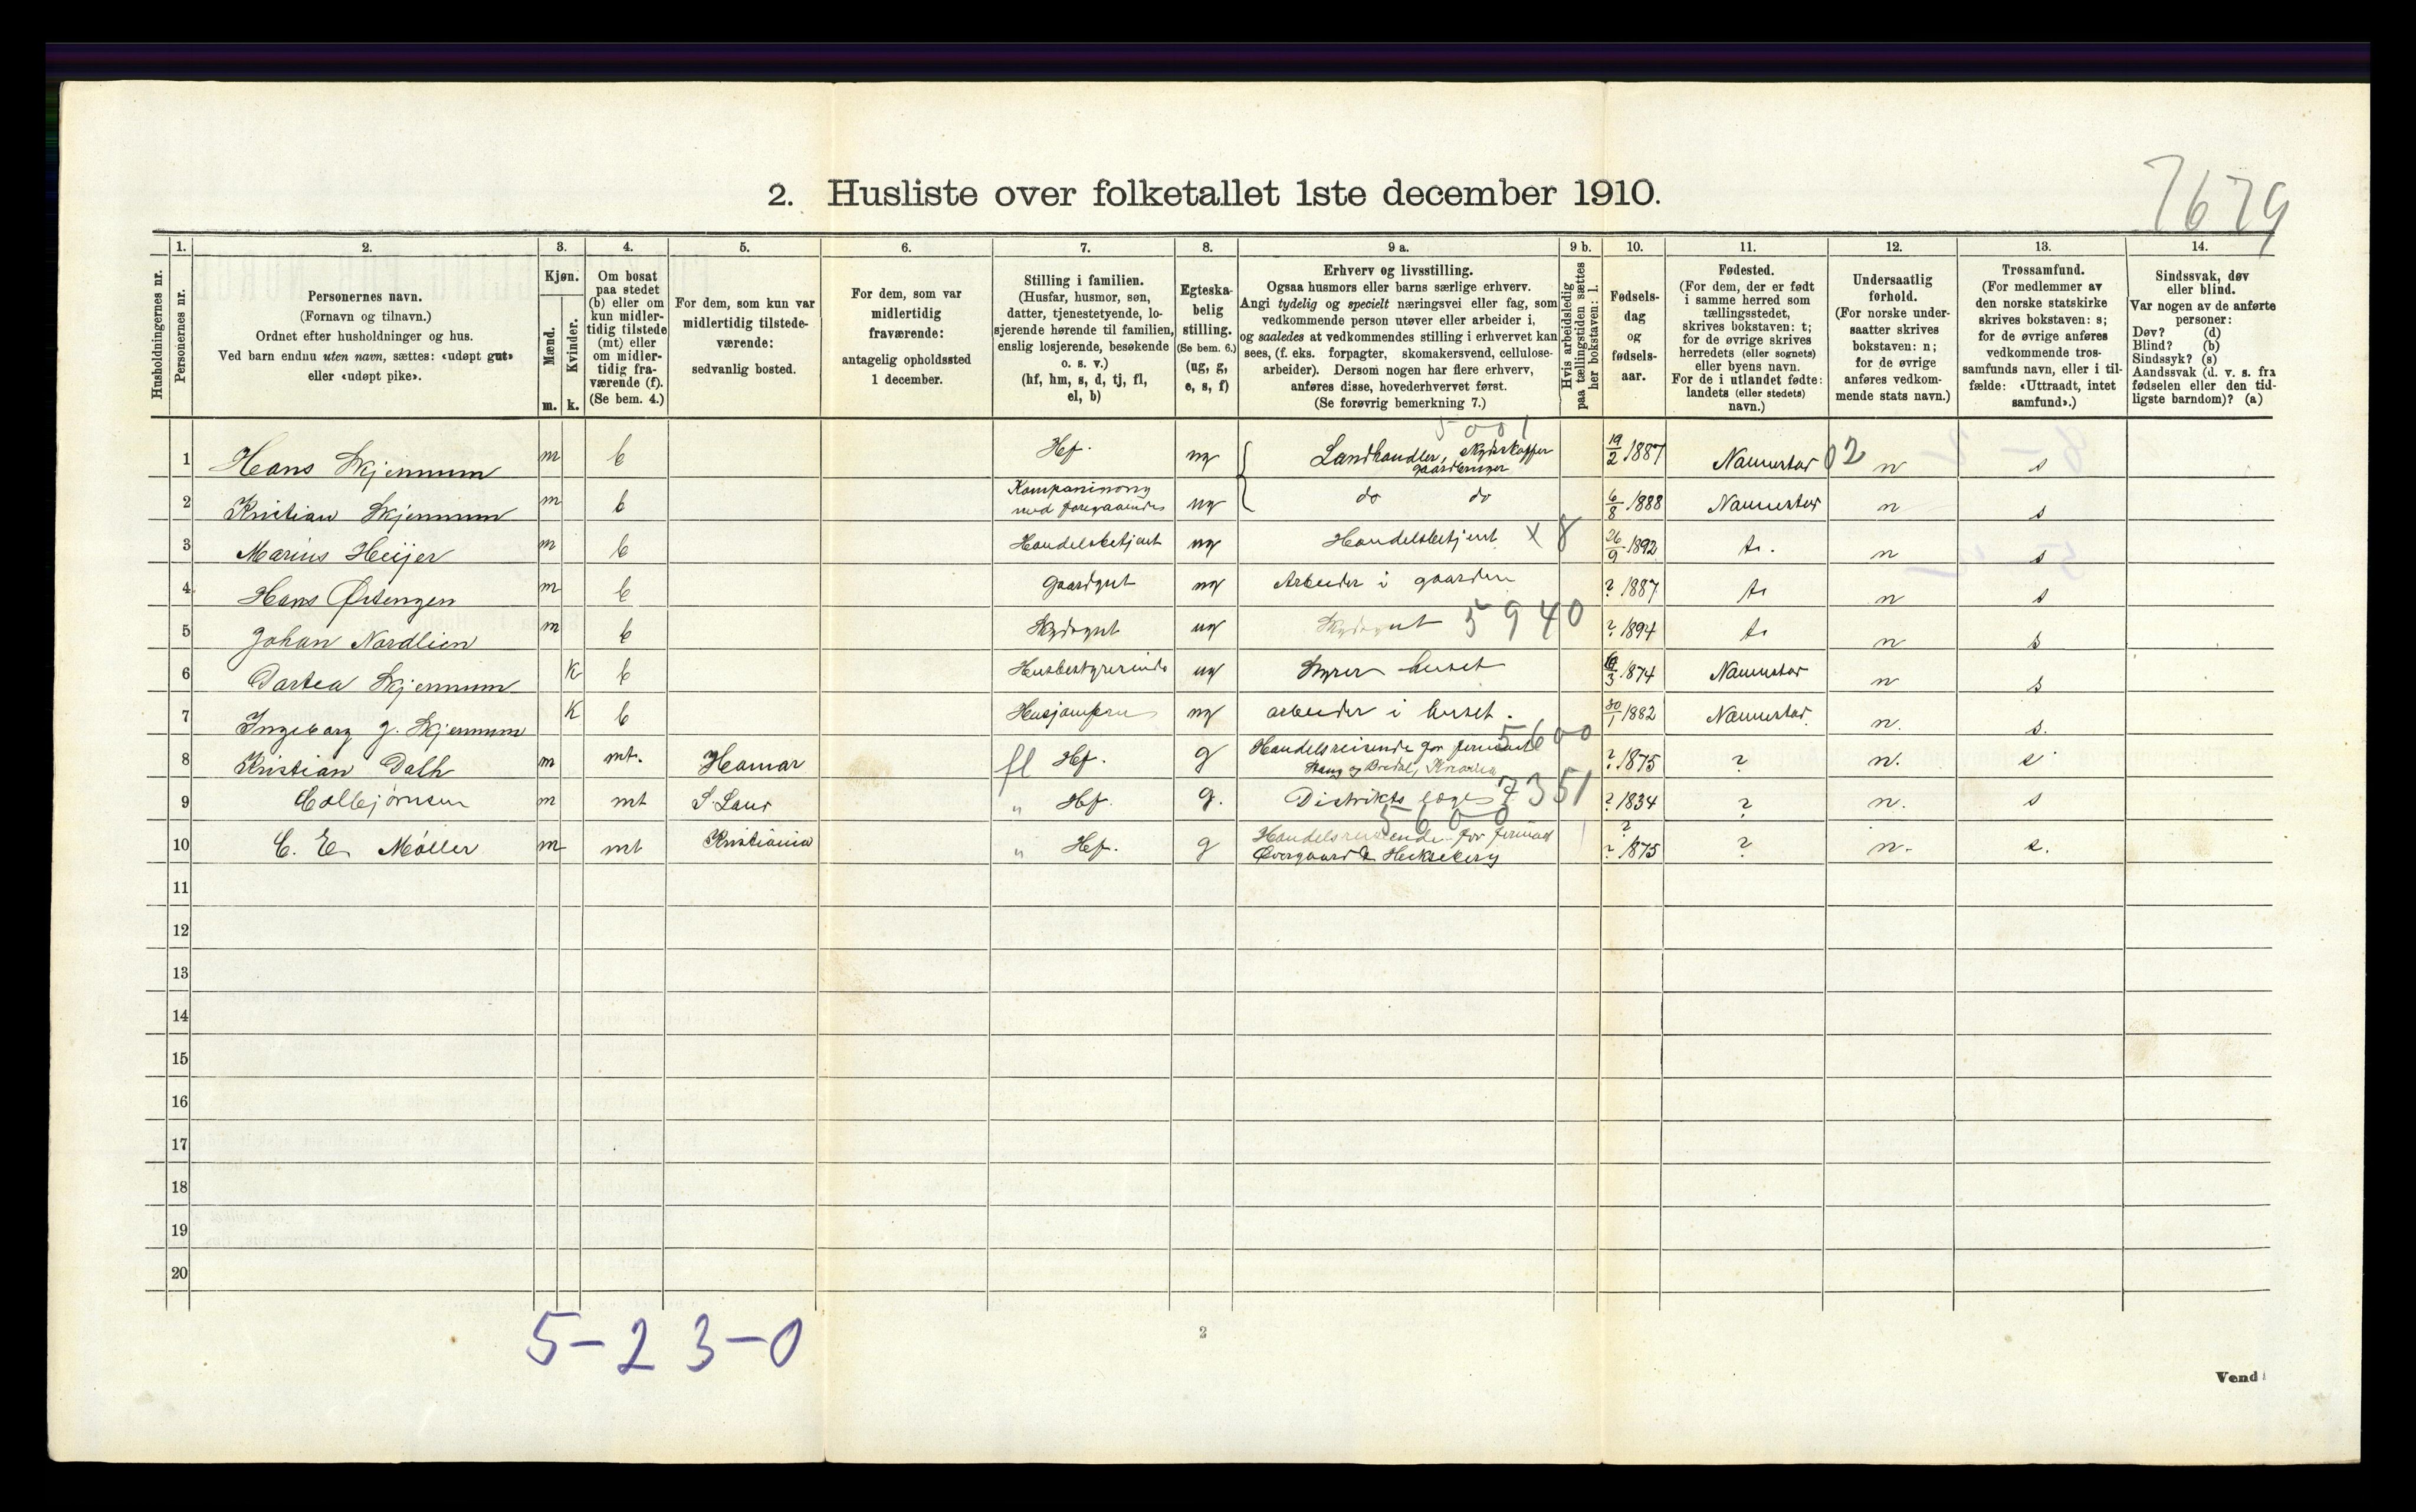 7679
2. Husliste over folketallet 1ste december 1910.
Husholdningernes nr.
1.
Personernes nr.
2.
Personernes navn.
(Fornavn og tilnavn.)
Ordnet efter husholdninger og hus.
Ved barn endnu uten navn, sættes: «udøpt gut»
eller «udøpt pike».
3.
Kjøn.
Mænd.
Kvinder.
m. k.
4.
Om bosat
paa stedet
(b) eller om
kun midler-
tidig tilstede
(mt) eller
om midler-
tidig fra-
værende (f).
(Se bem. 4.)
5.
For dem, som kun var
midlertidig tilstede-
værende:
sedvanlig bosted.
6.
For dem, som var
midlertidig
fraværende:
antagelig opholdssted
1 december.
7.
Stilling i familien.
(Husfar, husmor, søn,
datter, tjenestetyende, lo-
sjerende hørende til familien,
enslig losjerende, besøkende
o. s. v.)
(hf, hm, s, d, tj, fl,
el, b)
8.
Egteska-
belig
stilling.
(Se bem. 6.)
(ug, g,
e, s, f)
9 a.
Erhverv og livsstilling.
Ogsaa husmors eller barns særlige erhverv.
Angi tydelig og specielt næringsvei eller fag, som
vedkommende person utøver eller arbeider i,
og saaledes at vedkommendes stilling i erhvervet kan
sees, (f. eks. forpagter, skomakersvend, cellulose-
arbeider). Dersom nogen har flere erhverv,
anføres disse, hovederhvervet først.
(Se forøvrig bemerkning 7.)
9 b.
Hvis arbeidsledig
paa tællingstiden sættes
her bokstaven: l.
10.
Fødsels-
dag
og
fødsels-
aar.
11.
Fødested.
(For dem, der er født
i samme herred som
tællingsstedet,
skrives bokstaven: t;
for de øvrige skrives
herredets (eller sognets)
eller byens navn.
For de i utlandet fødte:
landets (eller stedets)
navn.)
12.
Undersaatlig
forhold.
(For norske under-
saatter skrives
bokstaven: n;
for de øvrige
anføres vedkom-
mende stats navn.)
13.
Trossamfund.
(For medlemmer av
den norske statskirke
skrives bokstaven: s;
for de øvrige anføres
vedkommende tros-
samfunds navn, eller i til-
fælde: «Uttraadt, intet
samfund».)
14.
Sindssvak, døv
eller blind.
Var nogen av de anførte
personer:
Døv? (d)
Blind? (b)
Sindssyk? (s)
Aandssvak (d. v. s. fra
fødselen eller den tid-
ligste barndom)? (a)
5001
1 Hans Skjennum m b Hf. ug Landhandler, Skydsskaffer gaardbruger 19/2 1887 Nannestad 02 n s
2 Kristian Skjennum m b Kompaninong med foregaaende ug do do 6/8 1888 Nannestad n s
3 Marius Heijer m b Handelsbetjent ug Handelsbetjent x 8 26/9 1892 t. n s
4 Hans Østengen m b Gaardgut ug Arbeider i gaarden ? 1887 t n s
5 Johan Nordlien m b Skydsgut ug Skydsgut 5940 ? 1894 t n s
6 Dortea Skjennum K b Husbestyrerinde ug Styrer huset 3 1874 Nannestad n s
7 Ingeborg J. Skjennum K b Husjomfru ug arbeider i huset. 30/1 1882 Nannestad. n. s.
5600
8 Kristian Dalh m mt. Hamar fl Hf. g Handelsreisende for firmaet ? 1875 ? n. s
9 Colbjørnsen m mt S. Land " Hf. g. Distriktslæge 7351 ? 1834 ? n. s
5600
10 C. E. Møller m mt Kristiania " Hf. g Handelsreisende for firmaet Overgaard & ? 1875 ? n. s.
11
12
13
14
15
16
17
18
19
20
5-2 3-0
2
Vend!